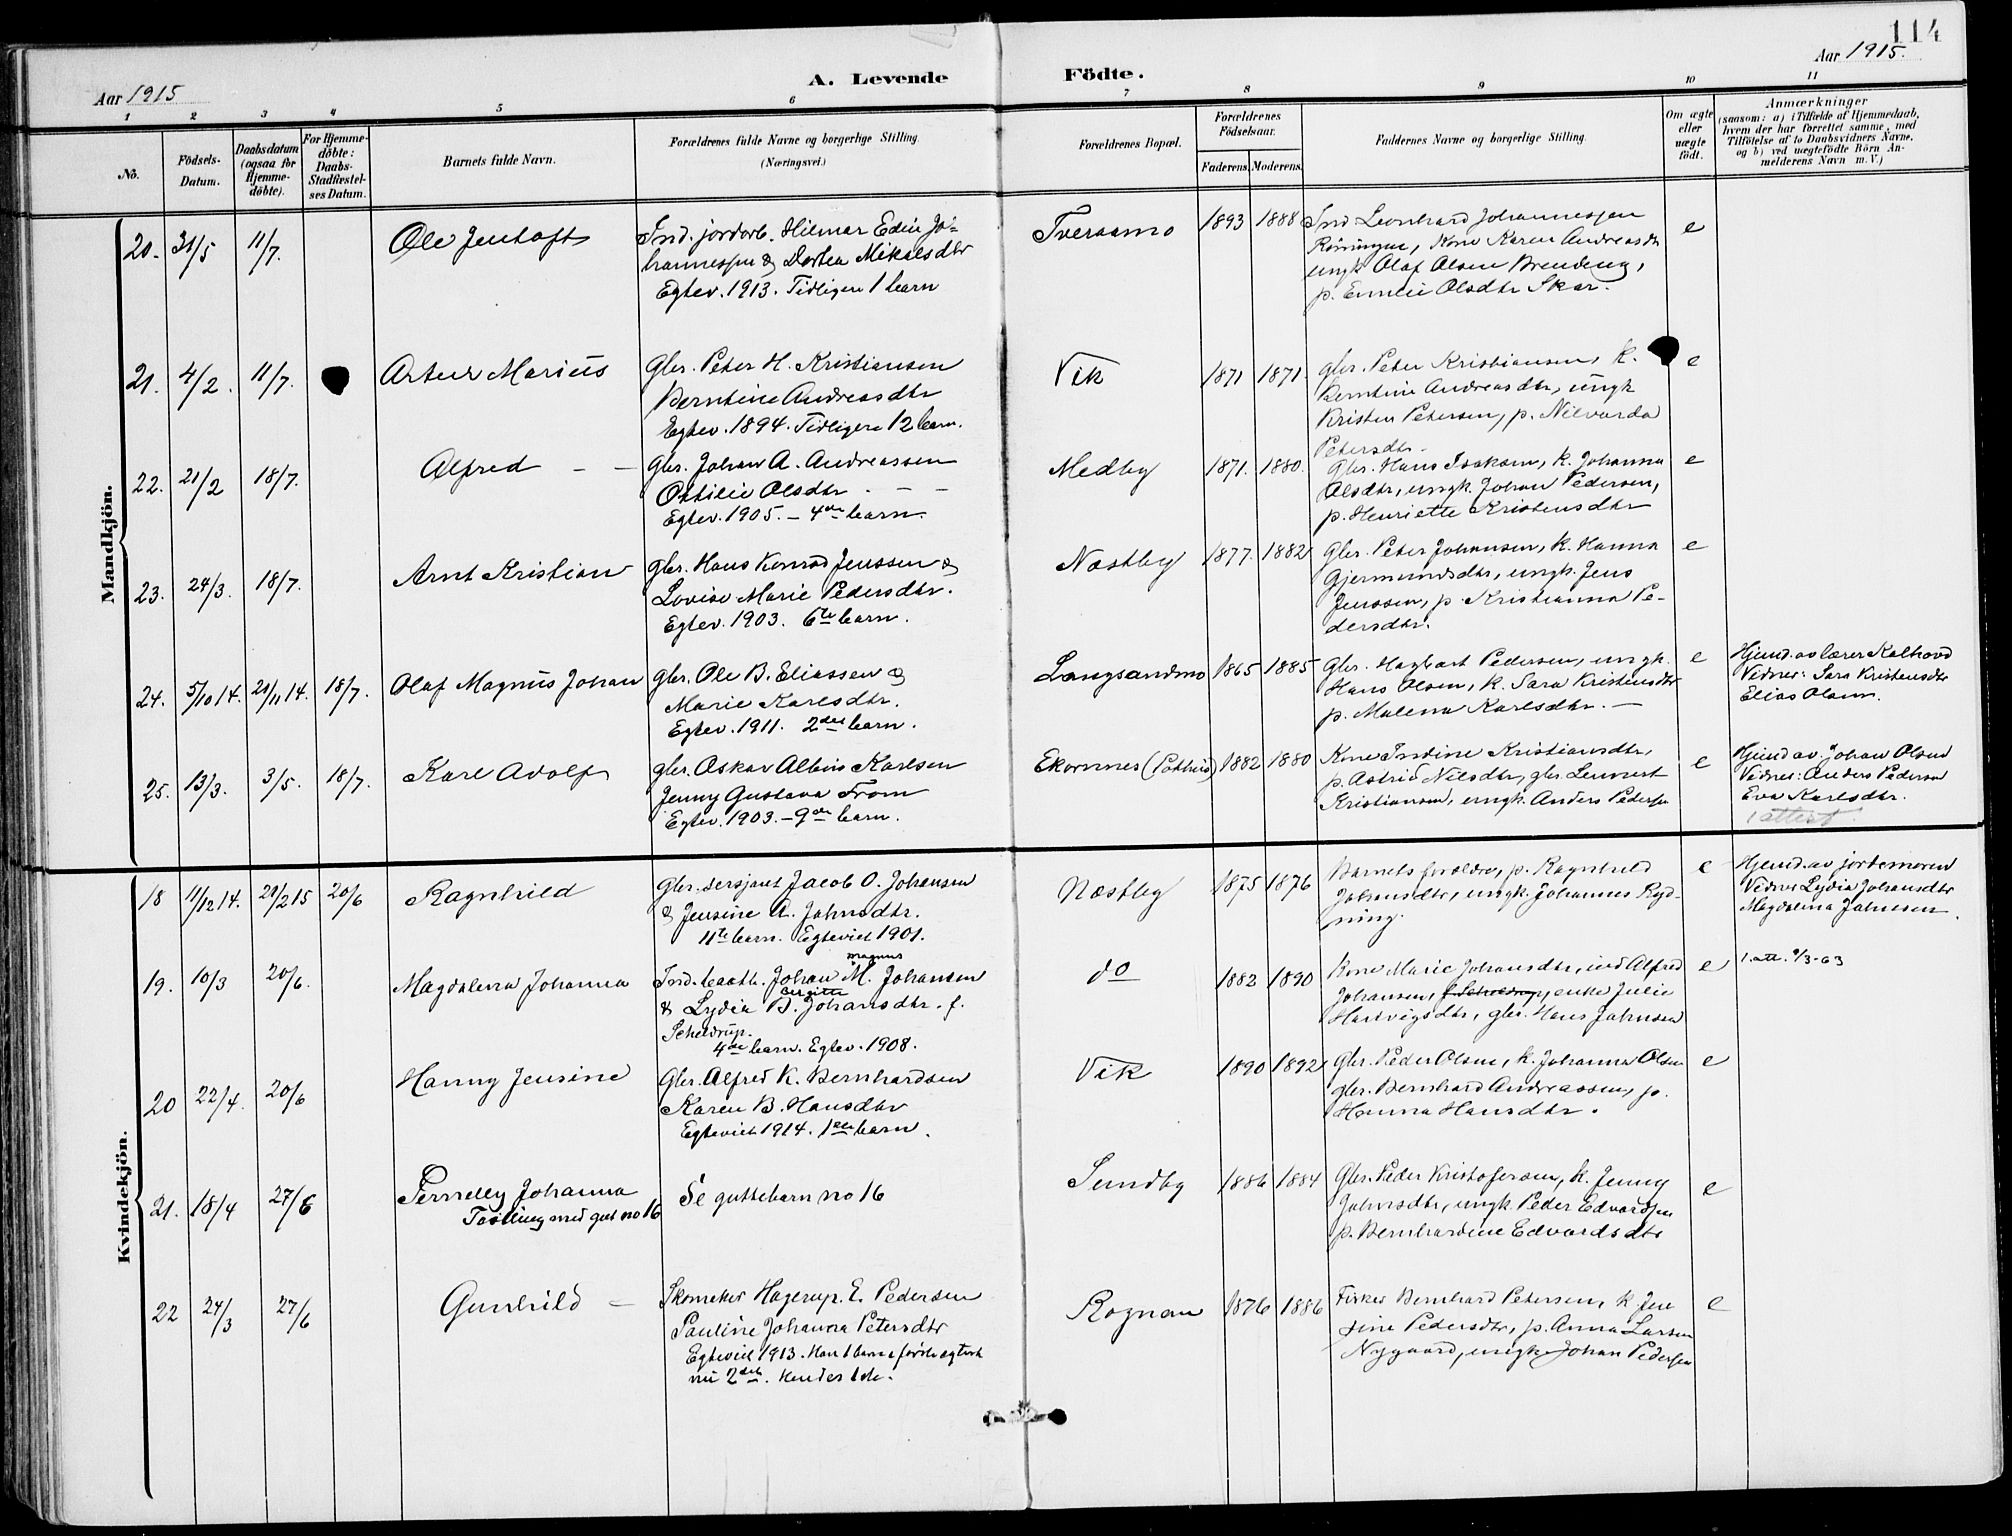 114
Aar 1915
A. Levende Födte.
Aar 1915.
1 2 3 4 5 6 7 8 9 10 11
No.
Födsels-Datum.
Daabsdatum (ogsaa for Hjemme-döbte).
For Hjemme-döbte: Daabs-Stadfæstel-ses Datum.
Barnets fulde Navn.
Forældrenes fulde Navne og borgerlige Stilling
(Næringsvei.)
Forældrenes Bopæl.
Forældrenes Födselsaar.
Faderens. Moderens.
Faddernes Navne og borgerlige Stilling.
Om ægte eller uægte födt.
Anmærkninger
(saasom: a) i Tilfælde af Hjemmedaab,
hvem der har forrettet samme, med
Tilföielse af to Daabsvidners Navne,
og b) ved uægtefödte Börn An-
melderens Navn m. V.)
Mandkjön.
20. 31/5 11/7. Ole Jentoft
Ind. jordarb. Hilmar Edin Jo-
hannessen & Dortea Mikalsdtr
Egtev. 1913. Tidligere 1 barn
Tveraamo 1893 1888
Ind Leonhard Johannessen
Röiningen, Kone Karen Andreasdtr
ungk Olaf Olsen Brendeng,
p. Emelie Olsdtr Skar.
e
21. 4/2. 11/7. Artur Marius
Gbr. Peter H. Kristiansen
Berntine Andreasdtr
Egtev. 1894. Tidligere 12 barn.
Vik 1871 1871.
Gbr. Peter Kristiansen, k.
Berntine Andreasdtr, ungk
Kristen Petersen, p. Nilvarda
Petersdtr.
e
22. 21/2 18/7. Alfred
Gbr. Johan A. Andreassen
Ottilie Olsdtr
Egtev. 1905. – 4de barn.
Medby 1871. 1880.
Gbr. Hans Isaksen, k. Johanna
Olsdtr, ungk. Johan Pedersen,
p. Henriette Kristensdtr
e
23. 24/3. 18/7. Arnt Kristian
Gbr. Hans Konrad Jenssen &
Lovise Marie Pedersdtr.
Egtev. 1903. 6te barn.
Næstby 1877. 1882
Gbr. Peter Johansen, k. Hanna
Gjermundsdtr, ungk. Jens
Jenssen, p. Kristianna Pe-
dersdtr.
e
24. 5/10 14. 21/11 14. 18/7. Olaf Magnus Johan
Gbr. Ole B. Eliassen &
Marie Karlsdtr.
Egtev. 1911. 2det barn.
Langsandmo 1865 1885
Gbr. Hagbart Pedersen, ungk.
Hans Olsen, k. Sara Kristensdtr
p. Malena Karlsdtr.
e
Hjemd. av lærer Kalhovd
Vidner: Sara Kristensdtr
Elias Olsen.
25. 13/3. 3/5. 18/7. Karl Adolf
Gbr. Oskar Albin Karlsen
Jenny Gustava From
Egtev. 1903. – 9de barn.
Ekornnes (Pothus) 1882 1880
Kone Indine Kristiansdtr,
p. Astrid Nilsdtr, gbr. Lennert
Kristiansen, ungk. Anders Pedersen
e
Hjemd av Johan Olsen
Vidner: Anders Pedersen
Eva Karlsdtr.
1 attest.
Kvindekjön.
18 11/12 14. 29/2 15 20/6 Ragnhild
Gbr. sersjant Jacob O. Johansen
& Jensine A. Jahnsdtr.
11te barn. Egteviet 1901.
Næstby 1875 1876
Barnets foreldre, p. Ragnhild
Johansdtr, ungk. Johannes Ryd-
ning.
e
Hjemd. av jordemoren
Vidner Lydia Johansdtr
Magdalena Jahnsen.
19. 10/3 20/6. Magdalena Johanna
Magnus
Ind. baatb. Johan M. Johansen
Bergitte
& Lydia B. Johansdtr. f.
Scheldrup.
4de barn. Egtev. 1908.
do 1882 1890
Kone Marie Johansdtr, ind Alfred
Johansen, f. Scheldrup, enke Julie
Hartvigsdtr, gbr. Hans Jahnsen
e
1. att. 9/3-63
20 22/4. 20/6 Hanny Jensine
Gbr. Alfred K. Bernhardsen
Karen B. Hansdtr
Egteviet 1914. 1ste barn.
Vik 1890 1892
Gbr. Peder Olsen, k. Johanna Olsen
gbr. Bernhard Andreassen, p.
Hanna Hansdtr.
e
21. 18/4 27/6 Pernelly Johanna
Tvilling med gut no 16
Se guttebarn no 16
Sundby 1886 1884
Gbr. Peder Kristofersen, k. Jenny
Jahnsdtr, ungk. Peder Edvardsen
p. Bernhardine Edvardsdtr
e
22 24/3 27/6 Gunhild
Skomaker Hagerup. E. Pedersen
Pauline Johanna Petersdtr
Egteviet 1913. Han 1 barn i förste egtesk
nu 2det. Hendes 1ste.
Rognan 1876 1886
Fisker Bernhard Petersen, k Jen
sine Pedersdtr, p. Anna Larsen
Nygaard, ungk Johan Pedersen
e